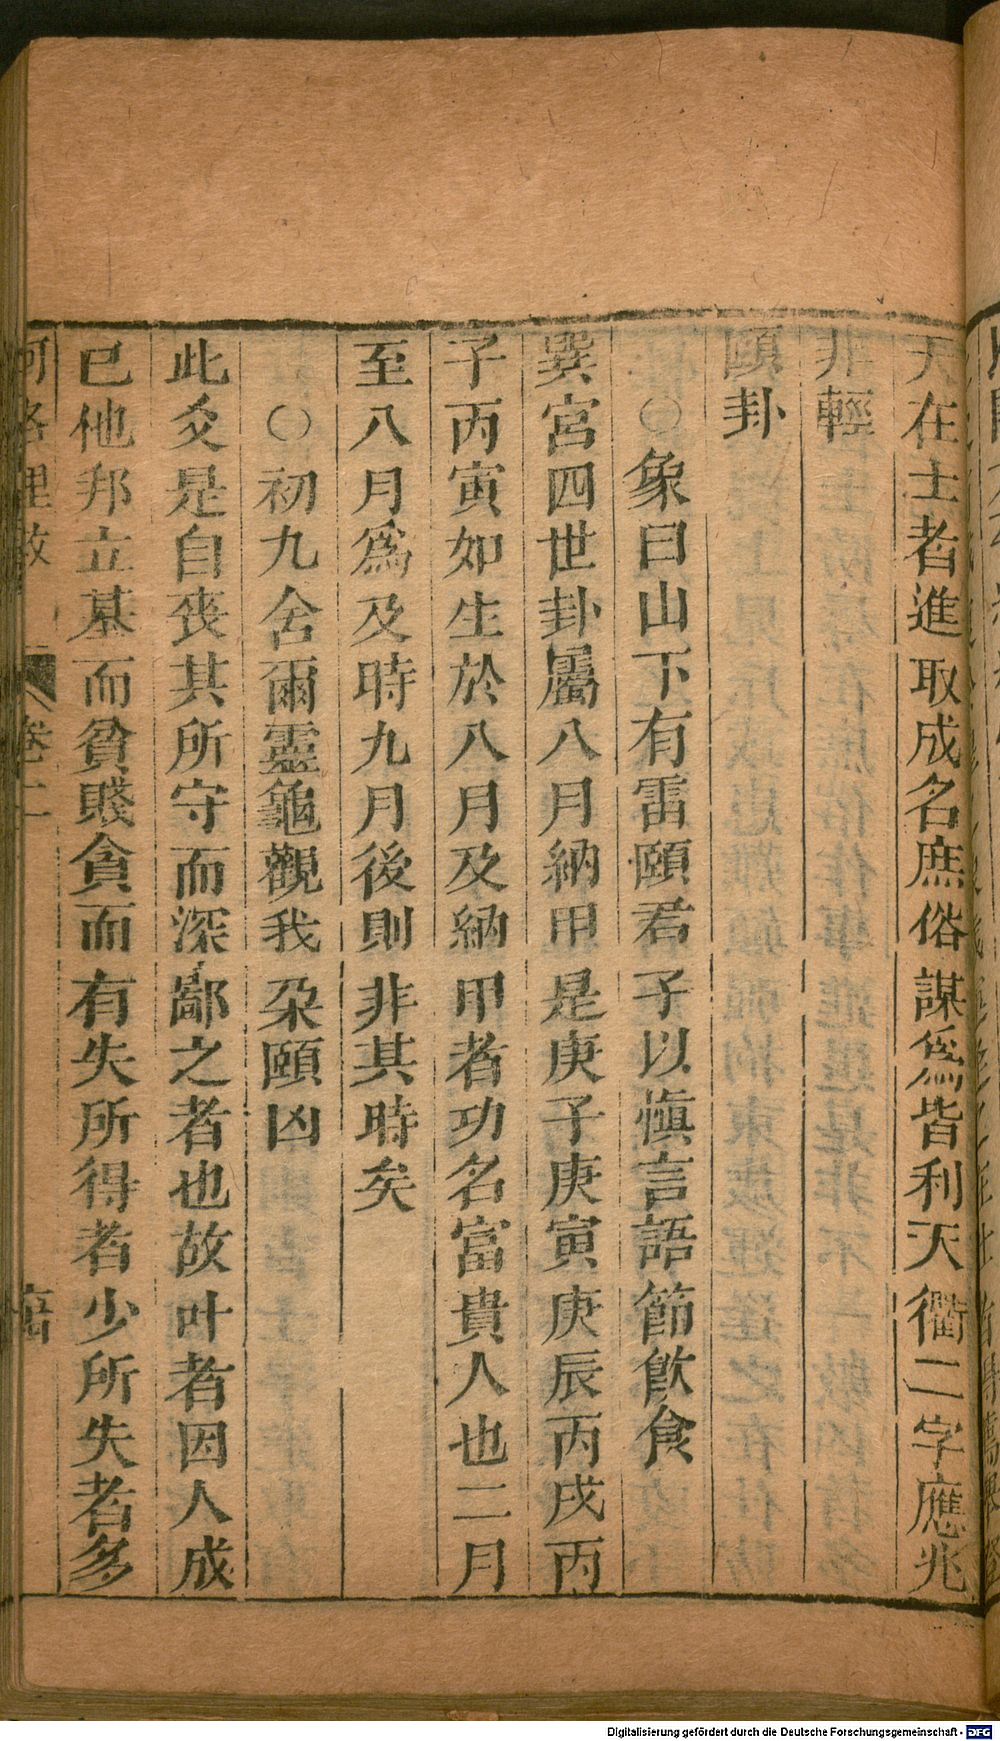 天在士者進取成名庶俗謀爲皆利天衢二字應兆
非輕
頤卦
○象曰山下有雷頤君子以愼言語節飮食
巽宮四世卦屬八月納甲是庚子庚寅庚辰丙戌丙
子丙寅如生於八月及納甲者功名富貴人也二月
至八月爲及時九月後則非其時矣
○初九舍爾靈龜觀我朶頤凶
此爻是自喪其所守而深鄙之者也故叶者因人成
已他邦立基而貧賤貪而有失所得者少所失者多
河洛理數
卷二
Digitalisierung gefördert durch die Deutsche Forschungsgemeinschaft - DFG